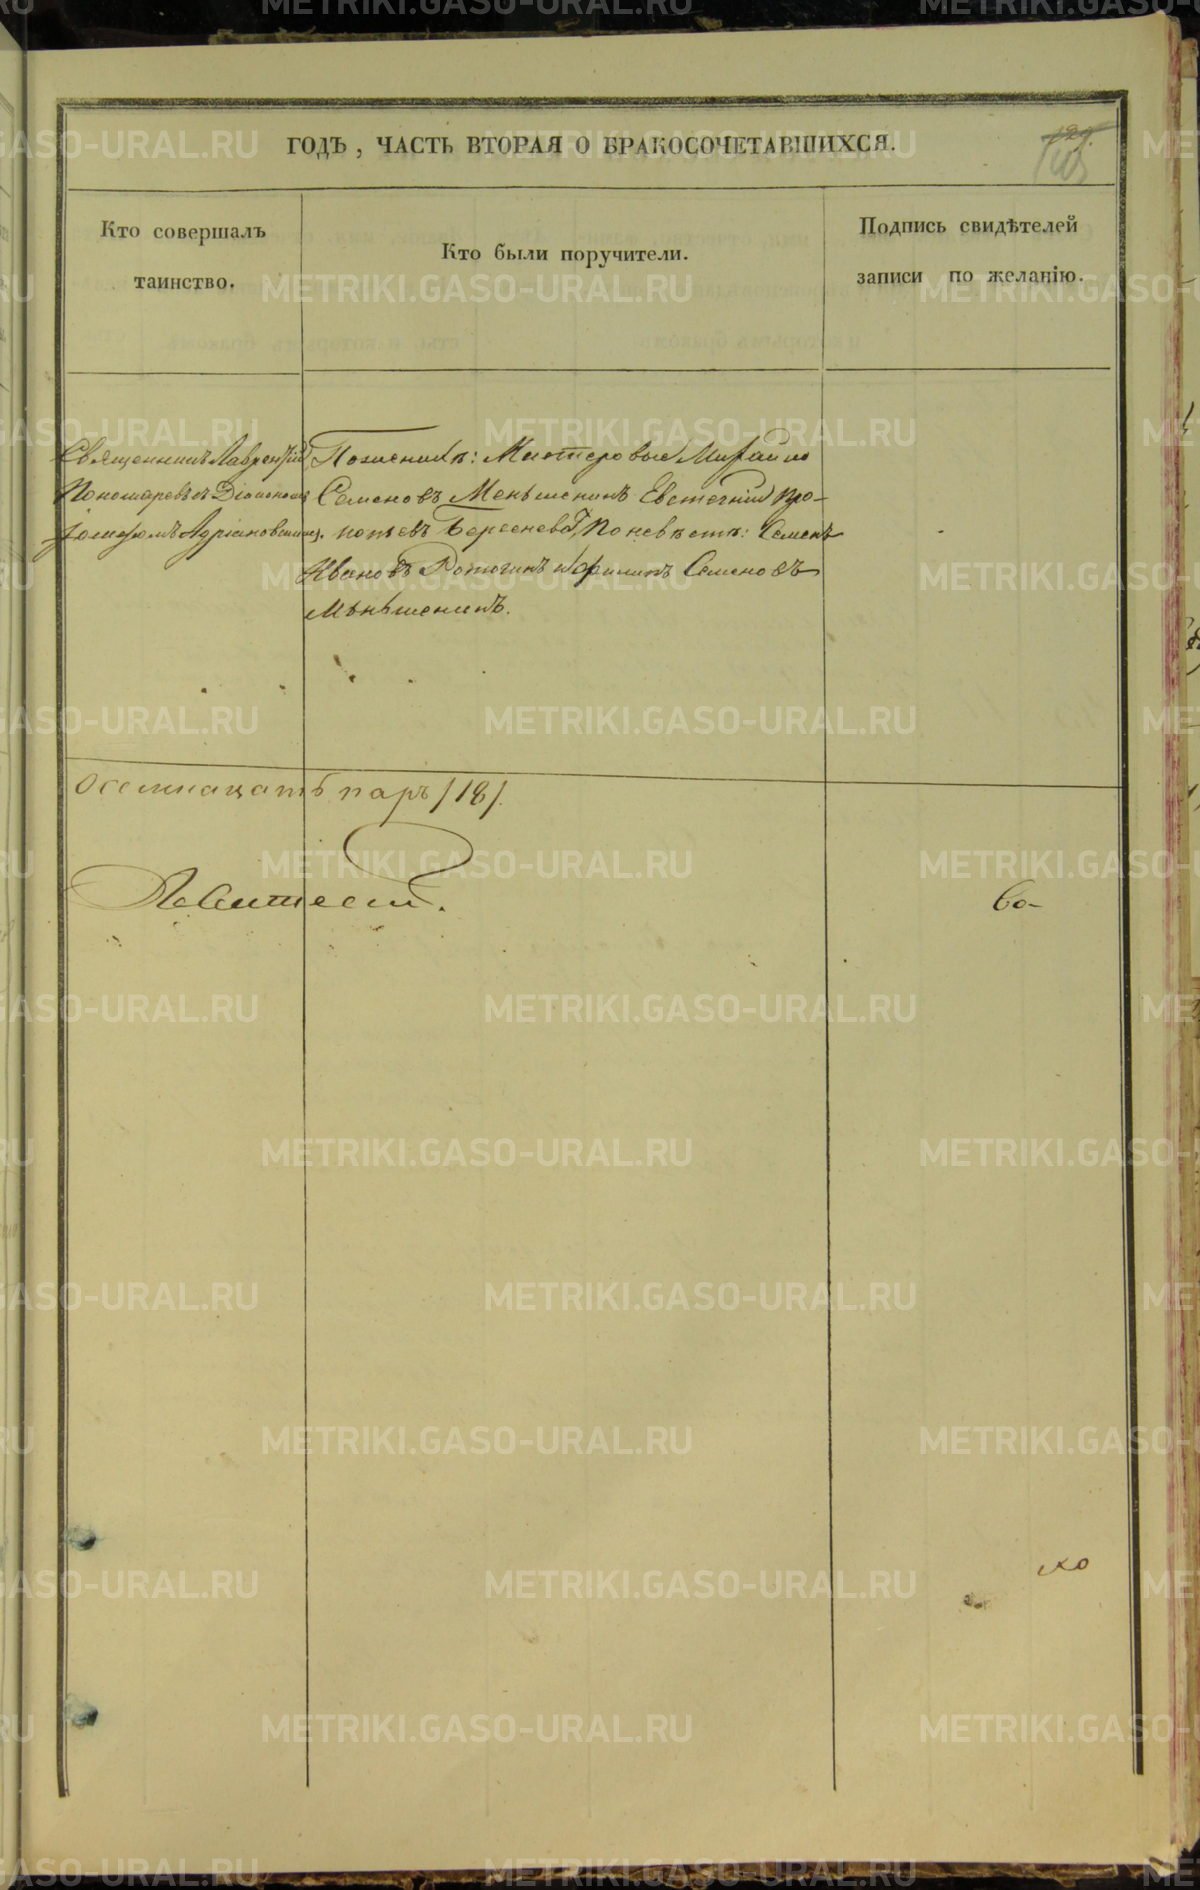 ГОДЪ, ЧАСТЬ ВТОРАЯ О БРАКОСОЧЕТАВШИХСЯ.
129.
Кто совершалъ
таинство.
Кто были поручители.
Подпись свидѣтелей
записи по желанію.
Священникъ Лаврентій
Пономаревъ съ Діакономъ
Іосифомъ Адріановскимъ.
По женихѣ: Мастеровые Михайло
Семеновъ Меньшенинъ Евстегній Про-
копьевъ Береснев, По невѣстѣ: Семенъ
Ивановъ Ромогинъ и Филипъ Семеновъ
Мѣньшенинъ.
Осемнацать паръ /18/.
Во-
хо
METRIKI.GASO-URAL.RU